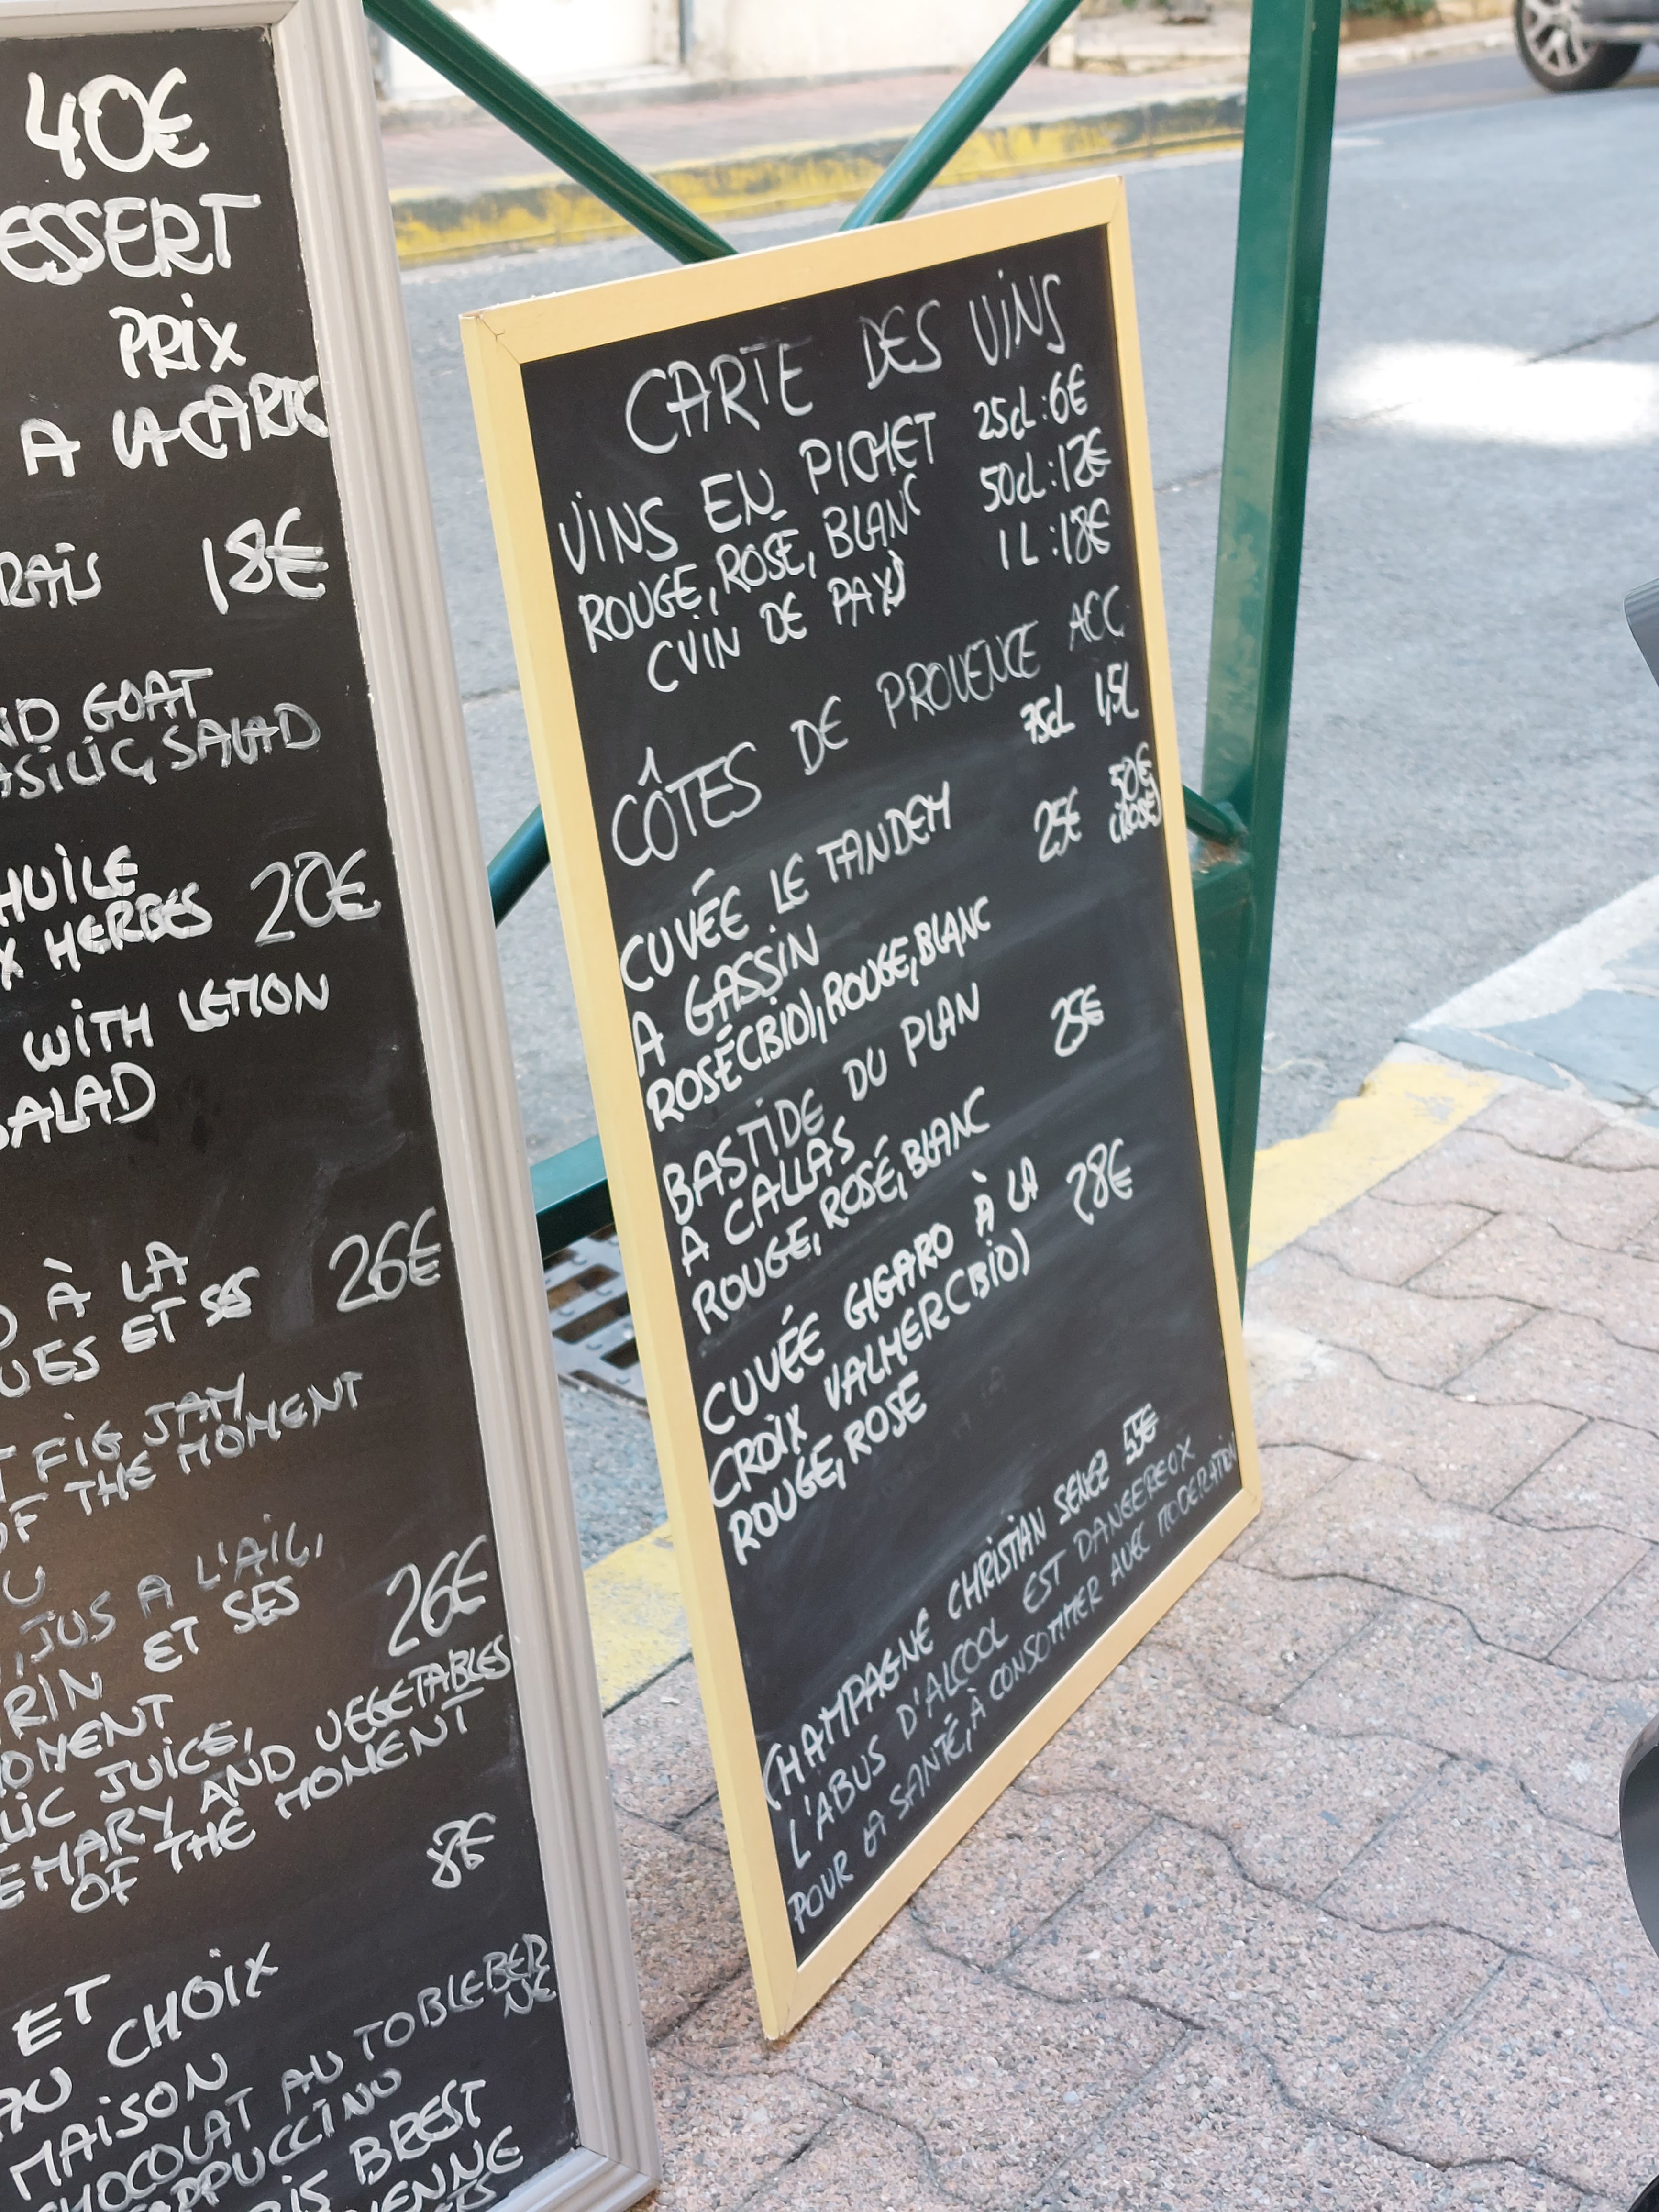 40€
ESSERT
PRIX
A LA CARTE
RAIS 18€
ND GOAT
ASILIC, SALAD
HUILE
X HERBES 20€
WITH LEMON
SALAD
À LA
UES ET SES 26€
T FIG JAM
OF THE MOMENT
U
, JUS A L'AIL,
RIN ET SES 26€
MOMENT
LIC JUICE,
EMARY AND VEGETABLES
OF THE MOMENT
8€
ET
AU CHOIX
MAISON
CHOCOLAT AU TOBLEBER
NE
CAPPUCCINO
RIS BREST
ENNE
CARTE DES VINS
VINS EN PICHET 25cl : 6€
ROUGE, ROSÉ, BLANC 50cl : 12€
(VIN DE PAYS) 1L : 18€
CÔTES DE PROVENCE AOC
75cl 1,5L
CUVÉE LE TANDEM 25€ 50€
(ROSÉ)
A GASSIN
ROSÉ(BIO), ROUGE, BLANC
BASTIDE DU PLAN 25€
A CALLAS
ROUGE, ROSÉ, BLANC
CUVÉE GIGARO À LA 28€
CROIX VALMER(BIO)
ROUGE, ROSE
CHAMPAGNE CHRISTIAN SENEZ 55€
L'ABUS D'ALCOOL EST DANGEREUX
POUR LA SANTÉ, À CONSOMMER AVEC MODÉRATION